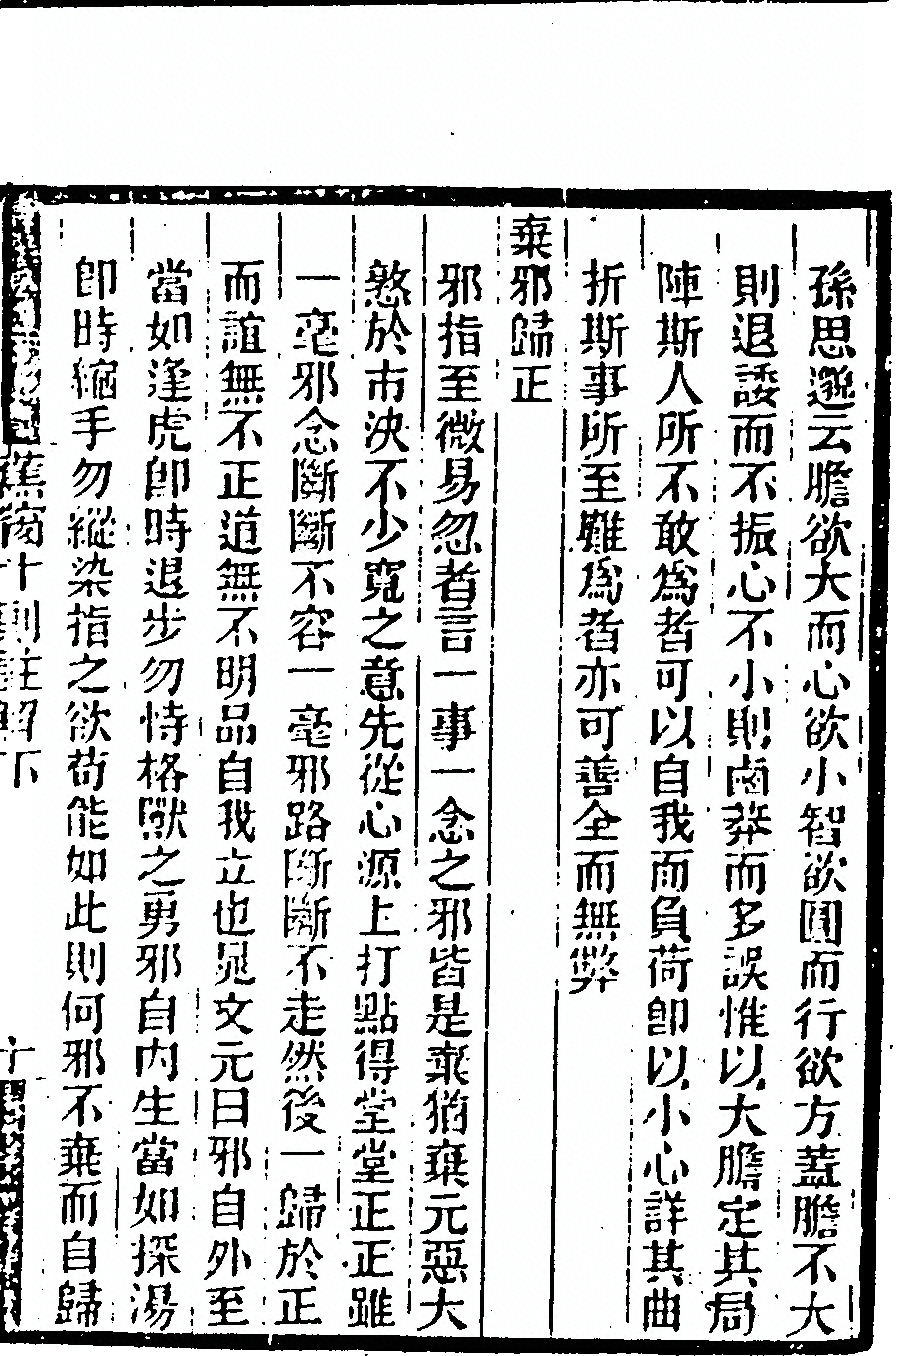 孫思邈云膽欲大而心欲小智欲圓而行欲方蓋膽不大
則退諉而不振心不小則鹵莽而多誤惟以大膽定其局
陣斯人所不敢為者可以自我而負荷卽以小心詳其曲
折斯事所至難為者亦可善全而無弊
棄邪歸正
邪指至微易忽者言一事一念之邪皆是棄猶棄元惡大
憝於市決不少寬之意先從心源上打點得堂堂正正雖
一毫邪念斷斷不容一毫邪路斷斷不走然後一歸於正
而誼無不正道無不明品自我立也晁文元曰邪自外至
當如逢虎卽時退步勿恃格獸之勇邪自內生當如探湯
卽時縮手勿縱染指之欲苟能如此則何邪不棄而自歸
蕉窗十則註解下
十